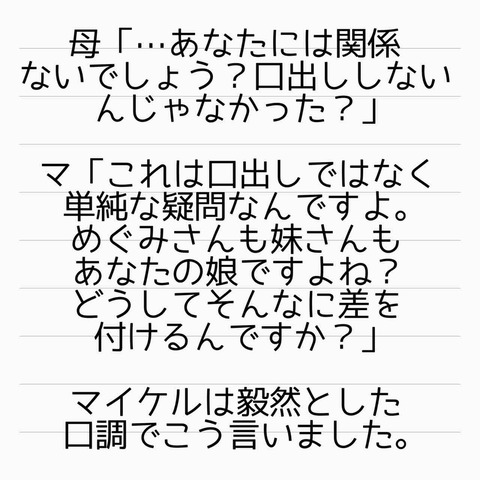 母「…あなたには関係
ないでしょう？口出ししない
んじゃなかった？」
マ「これは口出しではなく
単純な疑問なんですよ。
めぐみさんも妹さんも
あなたの娘ですよね？
どうしてそんなに差を
付けるんですか？」
マイケルは毅然とした
口調でこう言いました。